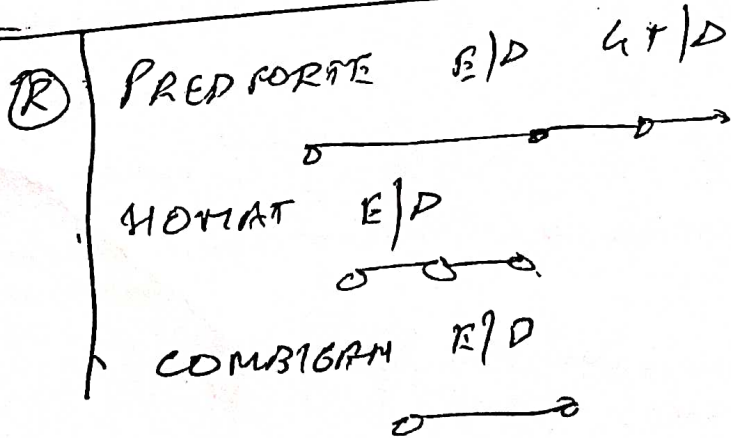 R PRED FORTE E/D 4 T/D
HOMAT E/D
COMBIGAN E/D